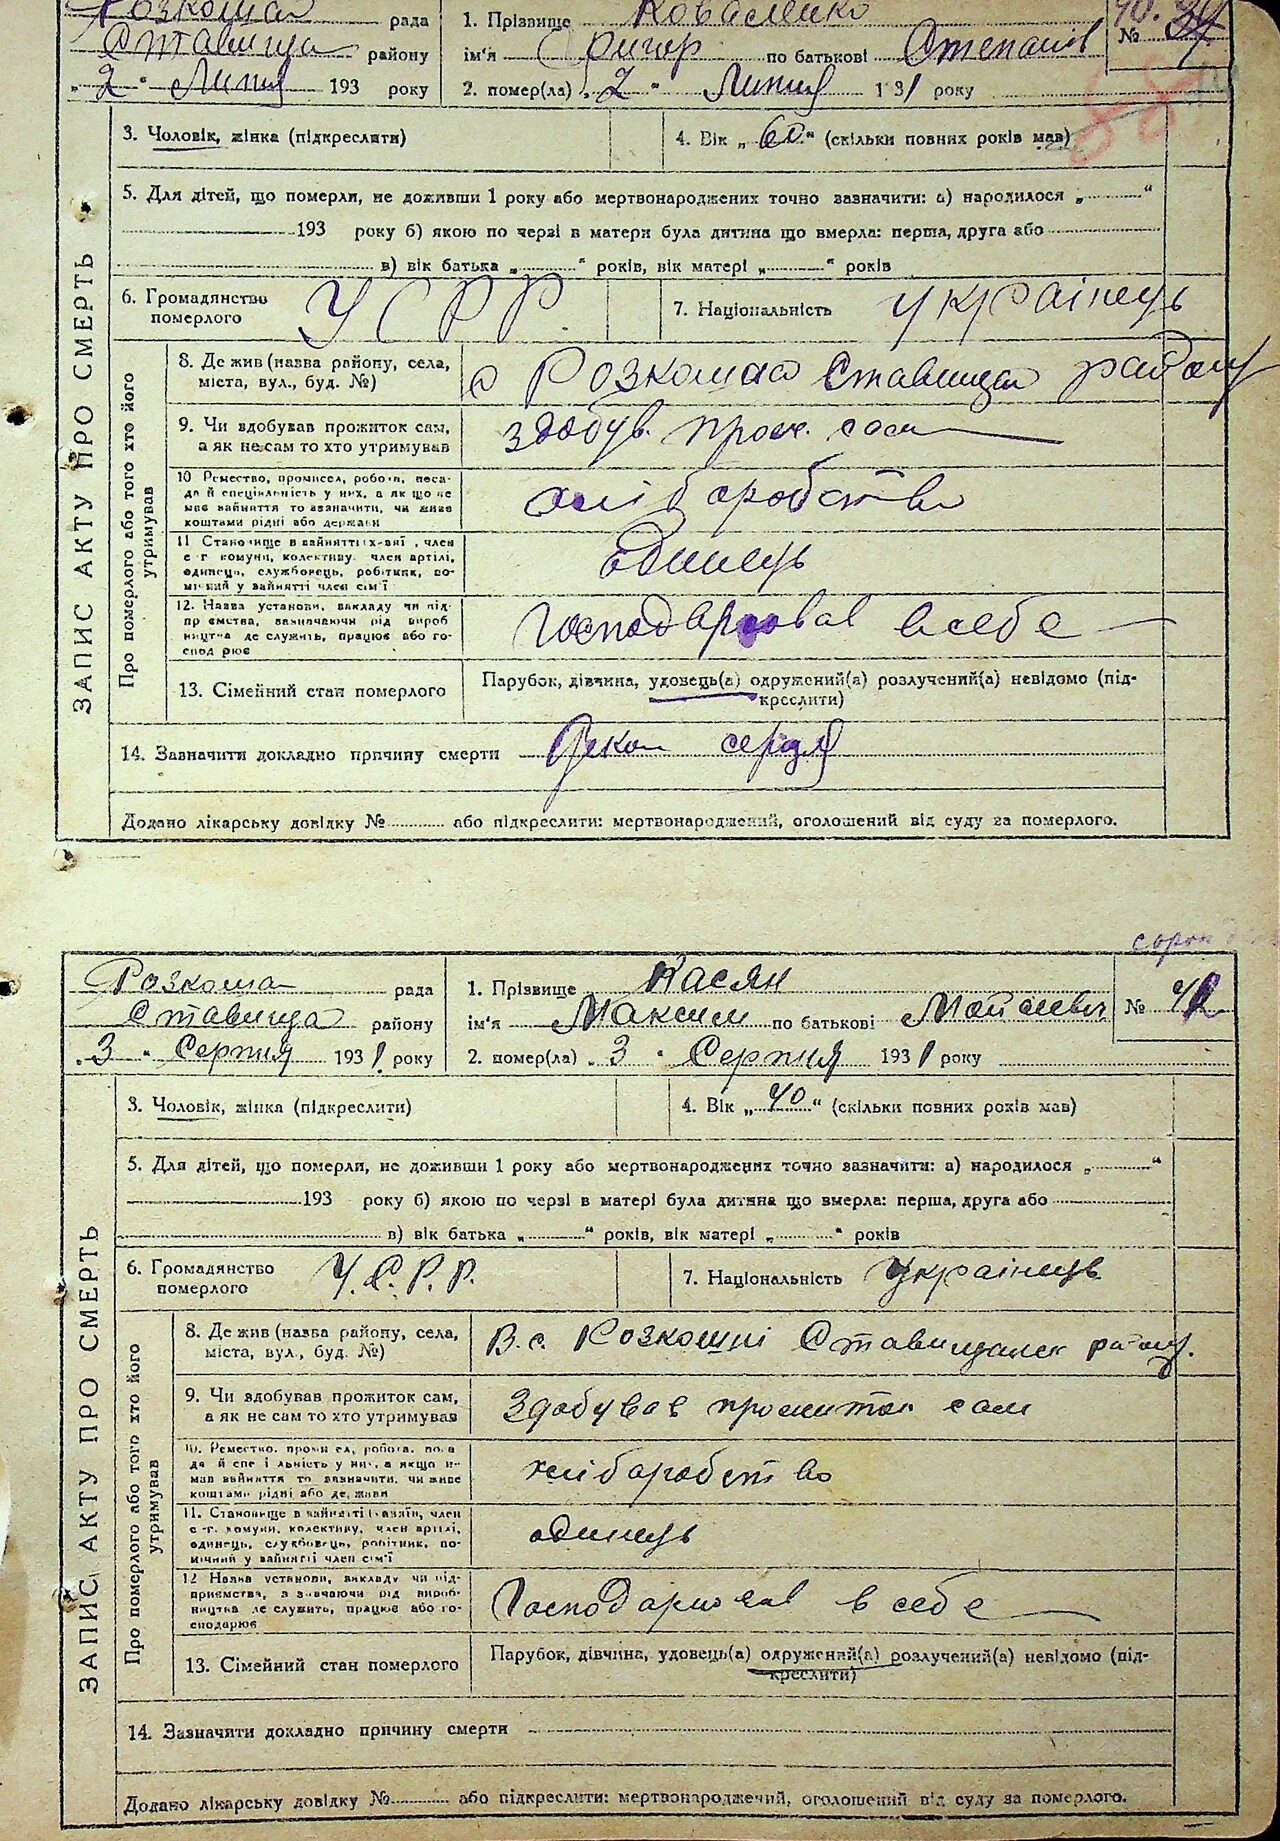 Розкошна рада 1. Прізвище Коваленко
Ставища району ім'я Григор по батькові Степанів №
„2" Липня 193 року 2. помер(ла) „2" Липня 1931 року
ЗАПИС АКТУ ПРО СМЕРТЬ
3. Чоловік, жінка (підкреслити) 4. Вік „60" (скільки повних років мав)
5. Для дітей, що померли, не доживши 1 року або мертвонароджених точно зазначити: а) народилося „ "
193 року б) якою по черзі в матери була дитина що вмерла: перша, друга або
в) вік батька „ " років, вік матері „ " років
6. Громадянство померлого УСРР 7. Національність українець
Про померлого або того хто його утримував
8. Де жив (назва району, села, міста, вул., буд. №) с Розкошна Ставища району
9. Чи вдобував прожиток сам, а як не сам то хто утримував здобув. прож. сам
10 Ремество, промисел, робота, поса-
да й спеціяльність у них, а як що не
мав вайняття то зазначити, чи живе
коштами рідні або держави
хліборобство
11 Становище в вайнятті член
с-г комуни, колективу член артілі,
одинець, службовець, робітник, по-
мічний у вайнятті член сім'ї
одинець
12. Назва установи, викладу чи під-
приємства, зазначаючи рід вироб
ництва де служить, працює або го-
сподарює
господарював в себе
13. Сімейний стан померлого Парубок, дівчина, удовець(а) одружений(а) розлучений(а) невідомо (під-
креслити)
14. Зазначити докладно причину смерти серця
Додано лікарську довідку № або підкреслити: мертвонароджений, оголошений від суду за померлого.
сорок
Розкошна рада 1. Прізвище Касян
Ставища району ім'я Максим по батькові № 42
„3" Серпня 1931 року 2. помер(ла) „3" Серпня 1931 року
ЗАПИС АКТУ ПРО СМЕРТЬ
3. Чоловік, жінка (підкреслити) 4. Вік „40" (скільки повних років мав)
5. Для дітей, що померли, не доживши 1 року або мертвонароджених точно зазначити: а) народилося „ "
193 року б) якою по черзі в матері була дитина що вмерла: перша, друга або
в) вік батька „ " років, вік матері „ " років
6. Громадянство померлого У.С.Р.Р. 7. Національність Українець
Про померлого або того хто його утримував
8. Де жив (назва району, села, міста, вул., буд. №) В с. Розкошні Ставищанск району.
9. Чи вдобував прожиток сам, а як не сам то хто утримував Здобував прожиток сам
10. Ремество, промисел, робота, поса
да й спеціяльність у них, а якщо не
мав вайняття то зазначити, чи живе
коштами рідні або держави
хліборобство
11. Становище в вайнятті член
с-г. комуни, колективу, член артілі,
одинець, службовець, робітник, по-
мічний у вайнятті член сім'ї
одинець
12 Назва установи, викладу чи під-
приємства, зазначаючи рід вироб-
ництва де служить, працює або го-
сподарює
Господарював в себе
13. Сімейний стан померлого Парубок, дівчина, удовець(а) одружений(а) розлучений(а) невідомо (під-
креслити)
14. Зазначити докладно причину смерти
Додано лікарську довідку № або підкреслити: мертвонароджечий, оголошений від суду за померлого.